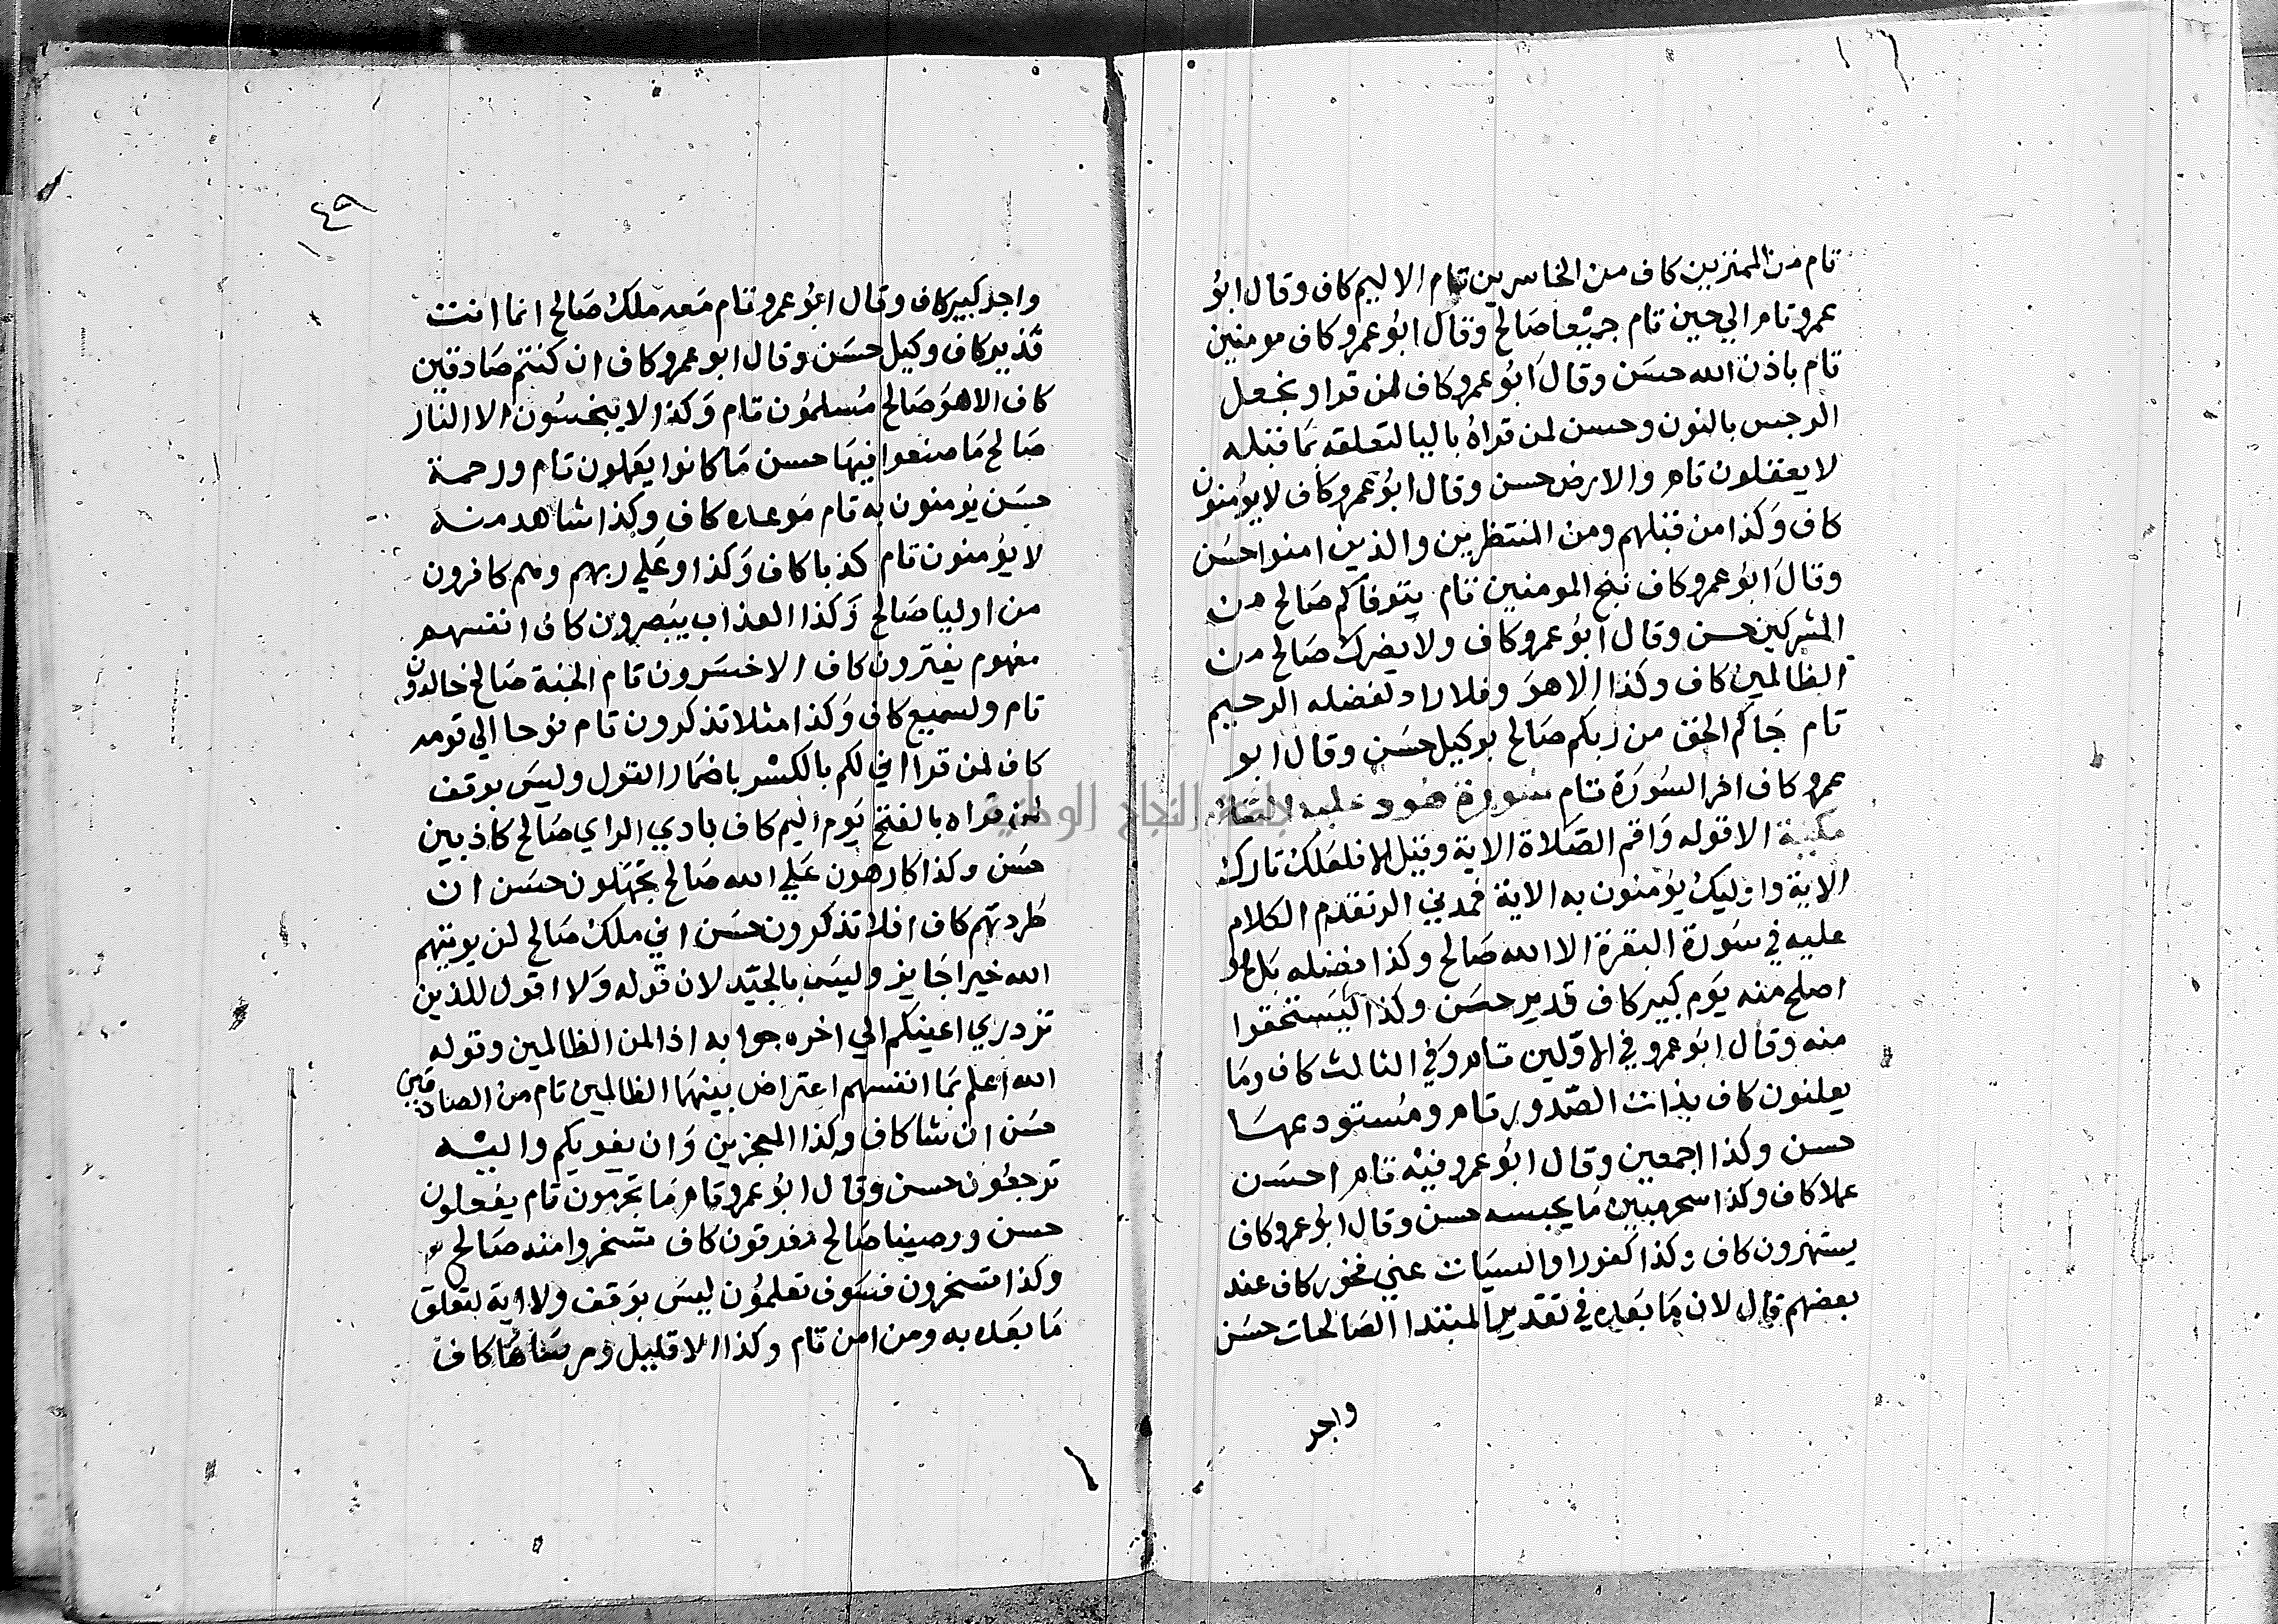 تام من الممترين كاف من الخاسرين تام الاليم كاف وقال ابو
عمرو تام الي حين تام جميعا صالح وقال ابو عمرو كاف مومنين
تام باذن الله حسن وقال ابو عمرو كاف لمن قرا ونجعل
الرجس بالنون وحسن لمن قراه باليا لتعلقه بما قبله
لا يعقلون تام والارض حسن وقال ابو عمرو كاف لا يؤمنون
كاف وكذا من قبلهم ومن المنتظرين والذين امنوا حسن
وقال ابو عمرو كاف ننج المومنين تام يتوفاكم صالح من
المشركين حسن وقال ابو عمرو كاف ولا يضرك صالح من
الظالمين كاف وكذا الا هو وفلا راد لفضله الرحيم
تام جاكم الحق من ربكم صالح بوكيل حسن وقال ابو
عمرو كاف اخر السورة تام سورة هود عليه السلام
مكية الا قوله واقم الصلاة الاية وقيل الا فلعلك تارك
الاية واوليك يؤمنون به الاية فمدني الر تقدم الكلام
عليه في سورة البقرة الا الله صالح وكذا فضله بل هو
اصلح منه يوم كبير كاف قدير حسن وكذا ليستخفوا
منه وقال ابو عمرو في الاولين تام وفي الثالث كاف وما
يعلنون كاف بذات الصدور تام ومستودعها
حسن وكذا اجمعين وقال ابو عمرو فيه تام احسن
عملا كاف وكذا سحر مبين ما يحبسه حسن وقال ابو عمرو كاف
يستهزون كاف وكذا كفورا والسيات عني فخور كاف عند
بعضهم قال لان ما بعده في تقدير المبتدا الصالحات حسن
واجر
٤٩
واجر كبير كاف وقال ابو عمرو تام معه ملك صالح انما انت
نذير كاف وكيل حسن وقال ابو عمرو كاف ان كنتم صادقين
كاف الا هو صالح مسلمون تام وكذا لا يبخسون الا النار
صالح ما صنعوا فيها حسن ما كانوا يعملون تام ورحمة
حسن يومنون به تام موعده كاف وكذا شاهد منه
لا يؤمنون تام كذبا كاف وكذا وعلي ربهم وهم كافرون
من اوليا صالح وكذا العذاب يبصرون كاف انفسهم
مفهوم يفترون كاف الاخسرون تام الجنة صالح خالدون
تام ولسميع كاف وكذا مثلا تذكرون تام نوحا الي قومه
كاف لمن قرا اني لكم بالكسر باضمار القول وليس بوقف
لمن قراه بالفتح يوم اليم كاف بادي الراي صالح كاذبين
حسن وكذا كارهون علي الله صالح تجهلون حسن ان
طردتهم كاف افلا تذكرون حسن اني ملك صالح لن يوتيهم
الله خيرا جايز وليس بالجيد لان قوله ولا اقول للذين
تزدري اعينكم الي اخره جوابه اذا لمن الظالمين وقوله
الله اعلم بما انفسهم اعتراض بينهما الظالمين تام من الصادقين
حسن ان شا كاف وكذا المعجزين وان يغويكم واليه
ترجعون حسن وقال ابو عمرو تام مما تجرمون تام يفعلون
حسن ووحينا صالح مغرقون كاف سخروا منه صالح
وكذا تسخرون فسوف تعلمون ليس بوقف ولا اية لتعلق
ما بعده به ومن امن تام وكذا الا قليل ومرساها كاف
جامعة النجاح الوطنية